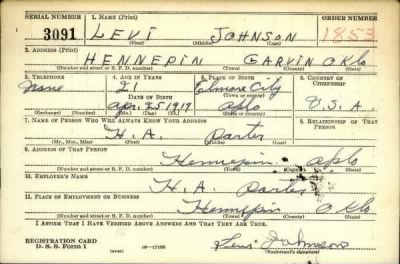 SERIAL NUMBER 1. NAME (Print) ORDER NUMBER
3091 LEVI JOHNSON 1853
(First) (Middle) (Last)
2. ADDRESS (Print)
HENNEPIN GARVIN OKLO
(Number and street or R. F. D. number) (Town) (County) (State)
3. TELEPHONE 4. AGE IN YEARS 5. PLACE OF BIRTH 6. COUNTRY OF CITIZENSHIP
None 21 Elmore City
DATE OF BIRTH (Town or county)
Apr. 25 1919 Oklo U.S.A.
(Exchange) (Number) (Mo.) (Day) (Yr.) (State or country)
7. NAME OF PERSON WHO WILL ALWAYS KNOW YOUR ADDRESS 8. RELATIONSHIP OF THAT PERSON
H. A.
(Mr., Mrs., Miss) (First) (Middle) (Last)
9. ADDRESS OF THAT PERSON
Hennepin Oklo
(Number and street or R. F. D. number) (Town) (County) (State)
10. EMPLOYER'S NAME
H. A.
11. PLACE OF EMPLOYMENT OR BUSINESS
Hennepin Oklo
(Number and street or R. F. D. number) (Town) (County) (State)
I AFFIRM THAT I HAVE VERIFIED ABOVE ANSWERS AND THAT THEY ARE TRUE.
REGISTRATION CARD
D. S. S. Form 1 Levi Johnson
(Registrant's signature)